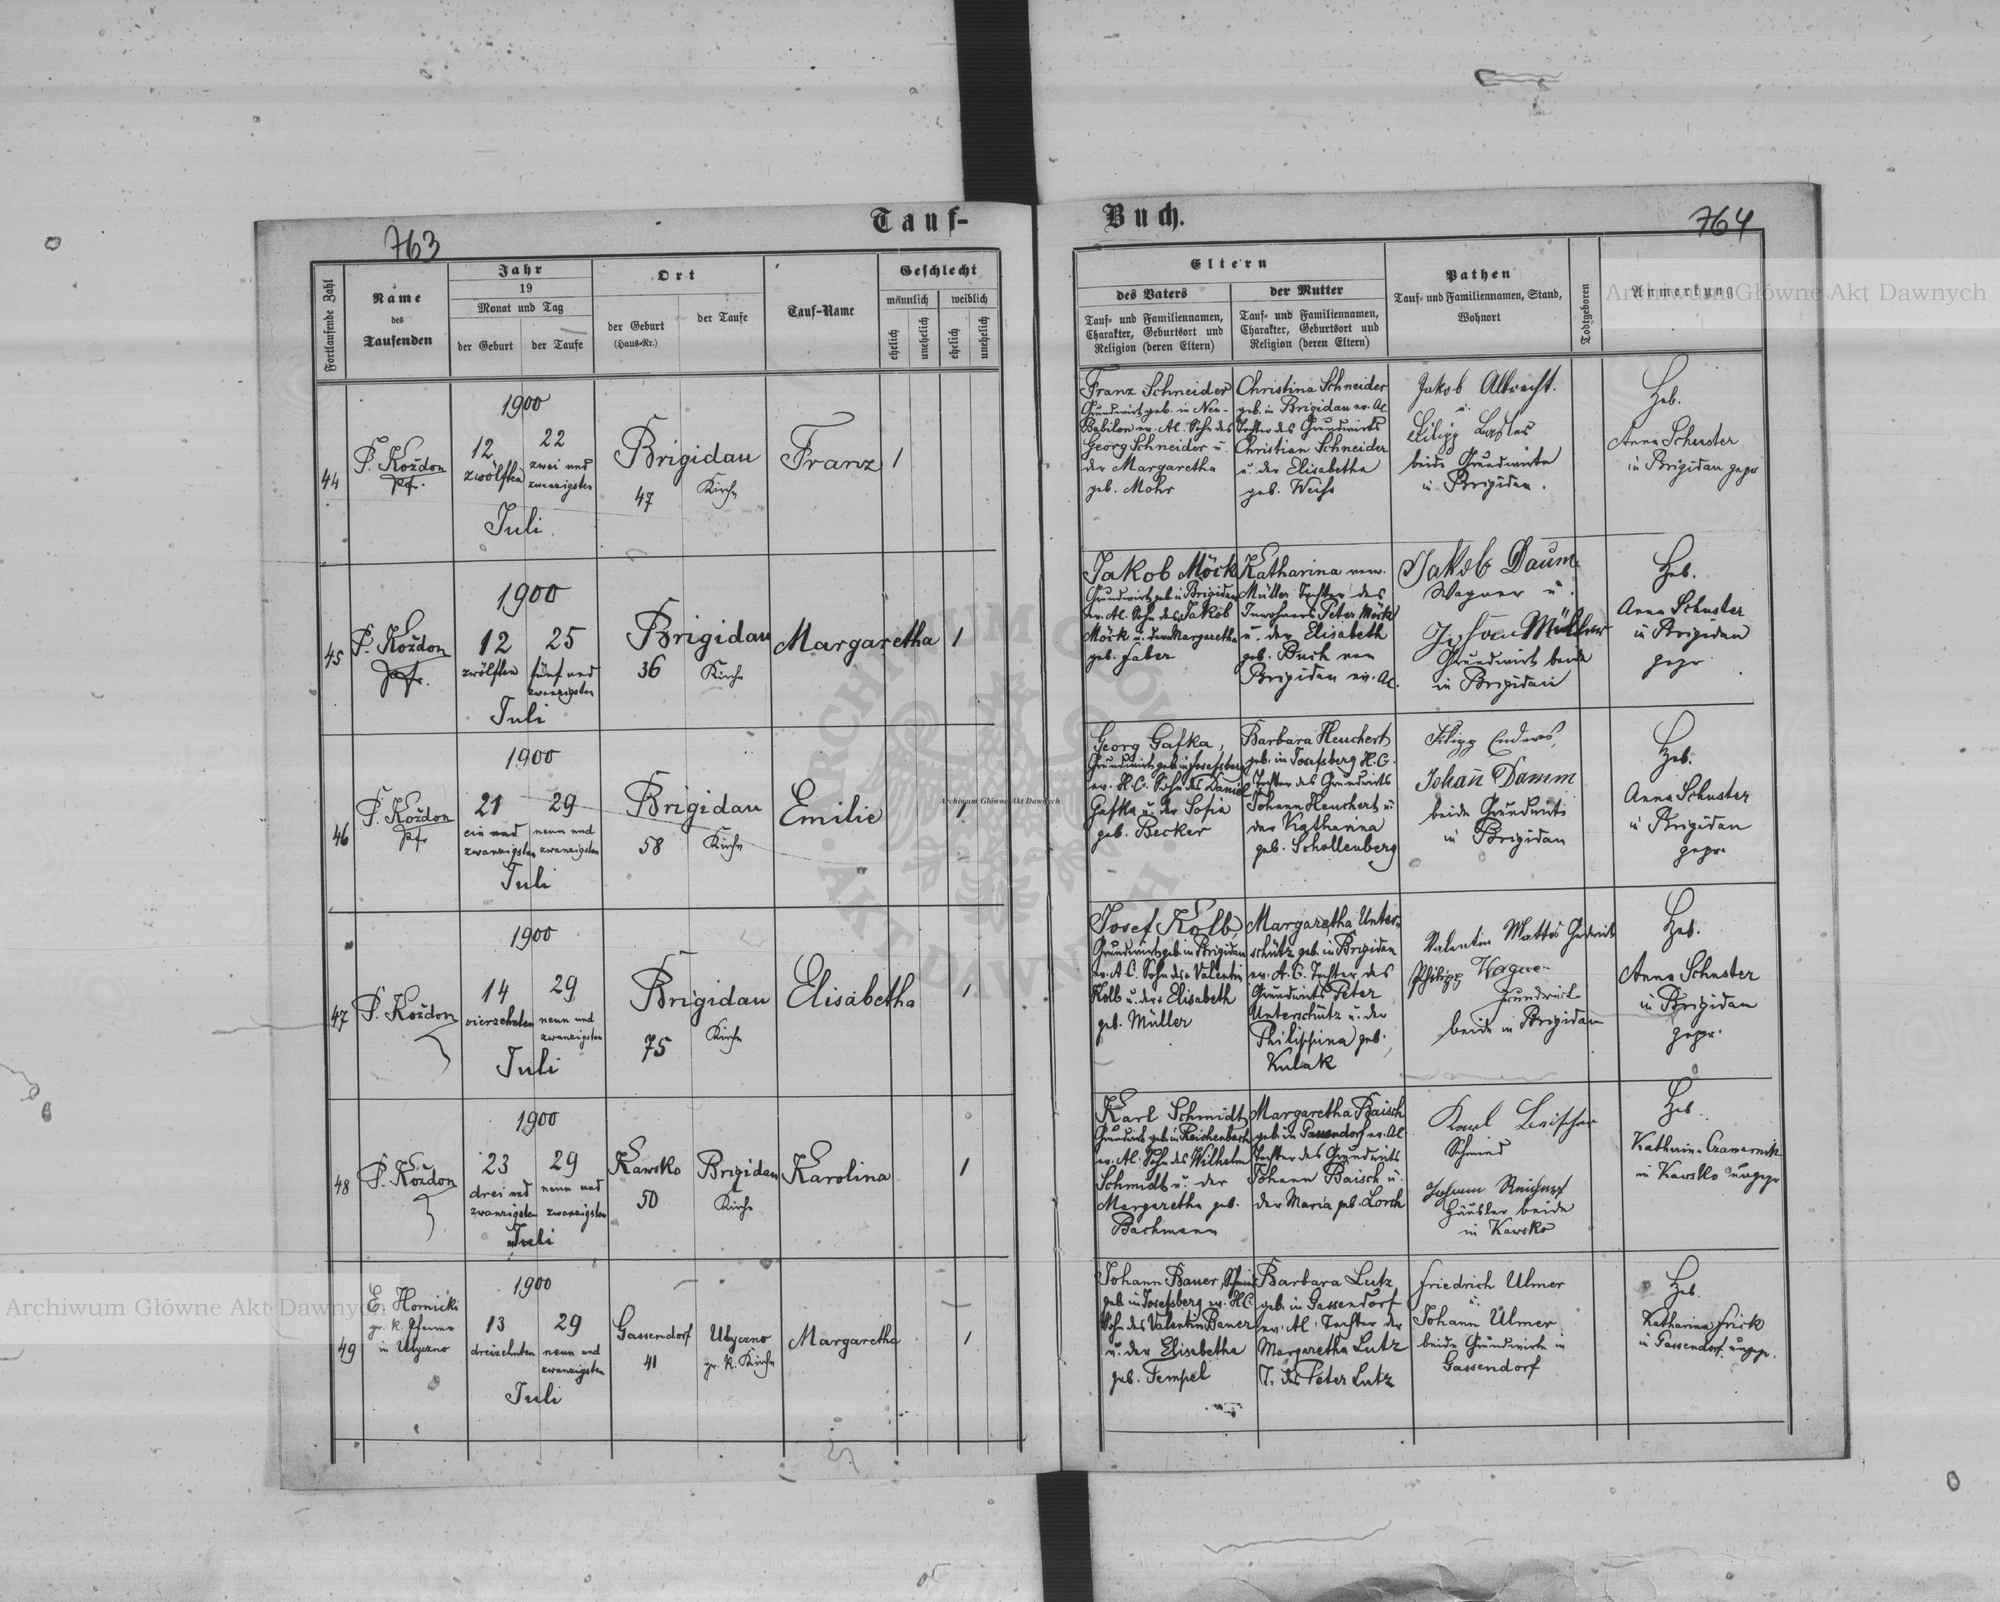 Tauf-
763
Fortlaufende Zahl
Name
des
Taufenden
Jahr
19
Monat und Tag
der Geburt
der Taufe
Ort
der Geburt
(Haus-Nr.)
der Taufe
Tauf-Name
Geschlecht
männlich
weiblich
ehelich
unehelich
ehelich
unehelich
44
P. Koždon
Pfr.
1900
12
zwölften
22
zwei und
zwanzigsten
Juli
Brigidau
47
Kirche
Franz
1
45
P. Koždon
Pfr.
1900
12
zwölften
25
fünf und
zwanzigsten
Juli
Brigidau
36
Kirche
Margaretha
1
46
P. Koždon
Pfr
1900
21
ein und
zwanzigsten
29
neun und
zwanzigsten
Juli
Brigidau
58
Kirche
Emilie
1
47
P. Koždon
1900
14
vierzehnten
29
neun und
zwanzigsten
Juli
Brigidau
75
Kirche
Elisabetha
1
48
P. Koždon
1900
23
drei und
zwanzigsten
29
neun und
zwanzigsten
Juli
Kawsko
50
Brigidau
Kirche
Karolina
1
49
E. Hornicki
gr. k. Pfarrer
in Ulyczno
1900
13
dreizehnten
29
neun und
zwanzigsten
Juli
Gassendorf
41
Ulyczno
gr. k. Kirche
Margaretha
1
Buch.
764
Eltern
des Vaters
Tauf- und Familiennamen,
Charakter, Geburtsort und
Religion (deren Eltern)
der Mutter
Tauf- und Familiennamen,
Charakter, Geburtsort und
Religion (deren Eltern)
Pathen
Tauf- und Familiennamen, Stand,
Wohnort
Todtgeboren
Anmerkung
Franz Schneider
Grundwirt geb. in Neu-
Babilon ev. Al. Sohn des
Georg Schneider u.
der Margaretha
geb. Mohr
Christina Schneider
geb. in Brigidau ev. Al.
Tochter des Grundwirts
Christian Schneider
u. der Elisabetha
geb. Weiss
Jakob Albrecht.
u.
Filipp
beide Grundwirte
in Brigidau.
Heb.
Anna Schuster
in Brigidau gepr
Jakob Möck
Grundwirt geb in Brigidau
ev. Al. Sohn des Jakob
Möck u. der Margaretha
geb. Faber
Katharina verw.
Müller Tochter des
Inwohners Peter Möck
u. der Elisabeth
geb. Buch von
Brigidau ev. Al.
Jakob Daum
Wagner u.
Müller
Grundwirt beide
in Brigidau
Heb.
Anna Schuster
in Brigidau
gepr
Georg Gafka,
Grundwirt geb in Josefsberg
ev. H.C. Sohn des Daniel
Gafka u. der Sofia
geb. Becker
Barbara Heuchert
geb. in Josefsberg H.C.
Tochter des Grundwirts
Johann Heuchert u
der Katharina
geb. Schollenberg
Filipp Enders,
Johann Damm
beide Grundwirte
in Brigidau
Heb.
Anna Schuster
in Brigidau
gepr.
Josef Kolb,
Grundwirt geb. in Brigidau
ev. A C. Sohn des Valentin
Kolb u. der Elisabeth
geb. Müller
Margaretha Unter-
schütz geb. in Brigidau
ev. A. C. Tochter des
Grundwirts Peter
Unterschütz u. der
Philippina geb.
Kulak
Valentin Mattes
Philipp Wagner
Grundwirt
beide in Brigidau
Heb.
Anna Schuster
in Brigidau
gepr.
Karl Schmidt
Grundwirt geb. in Reichenbach
ev. Al. Sohn des Wilhelm
Schmidt u. der
Margaretha geb.
Bachmann
Margaretha Baisch
geb. in Gassendorf ev. Al.
Tochter des Grundwirts
Johann Baisch u.
der Maria geb. Lorch
Karl
Schmied
Johann
Häusler beide
in Kawsko
Heb.
Katharina
in Kawsko ungepr
Johann Bauer, Schmied
geb in Josefsberg ev. H.C.
Sohn des Valentin Bauer
u. der Elisabetha
geb. Tempel
Barbara Lutz
geb. in Gassendorf
ev. Al. Tochter der
Margaretha Lutz
T. des Peter Lutz
Friedrich Ulmer
u.
Johann Ulmer
beide Grundwirte in
Gassendorf
Heb.
Katharina Frick
in Gassendorf ungepr.
Archiwum Główne Akt Dawnych
Archiwum Główne Akt Dawnych
Archiwum Główne Akt Dawnych
ARCHIWUM GŁÓWNE
AKT DAWNYCH